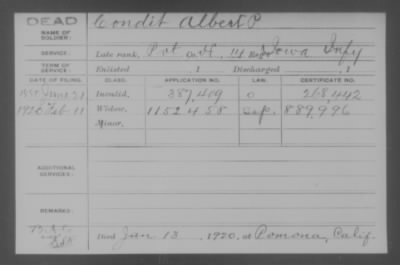 DEAD
NAME OF SOLDIER: Condit Albert P
SERVICE: Late rank, Pvt Co. H, 14 Reg't Iowa Infy
TERM OF SERVICE: Enlisted , 1 Discharged , 1
DATE OF FILING CLASS. APPLICATION NO. LAW. CERTIFICATE NO.
June 21 Invalid, 387,419 268,442
1920 Feb 11 Widow, 1152458 889,996
Minor,
ADDITIONAL SERVICES:
REMARKS:
Died Jan 13, 1920, at Pomona, Calif.